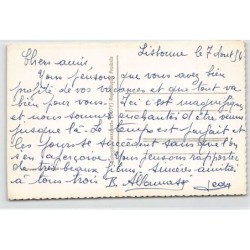 Lisbonne le 7 Aout 56
Chers amis,
Nous pensons que vous avez bien
profité de vos vacances et que tout va
bien pour vous. Ici c'est magnifique
et nous sommes enchantés d'être venus
jusque là. Le temps est parfait et
les jours se succèdent sans que l'on
s'en aperçoive. Nous pensons rapporter
de très beaux films. Sincères amitiés
à tous trois
Jean